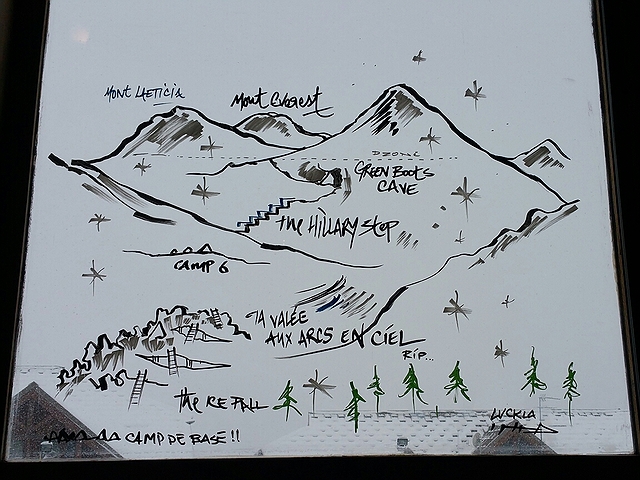 MONT LAETICIA
Mont Everest
DZONE
GREEN BOOTS
CAVE
the HILLARY Step
CAMP 6
LA VALÉE
AUX ARCS EN CIEL
RIP...
the ICE FALL
LUCKLA
CAMP DE BASE !!